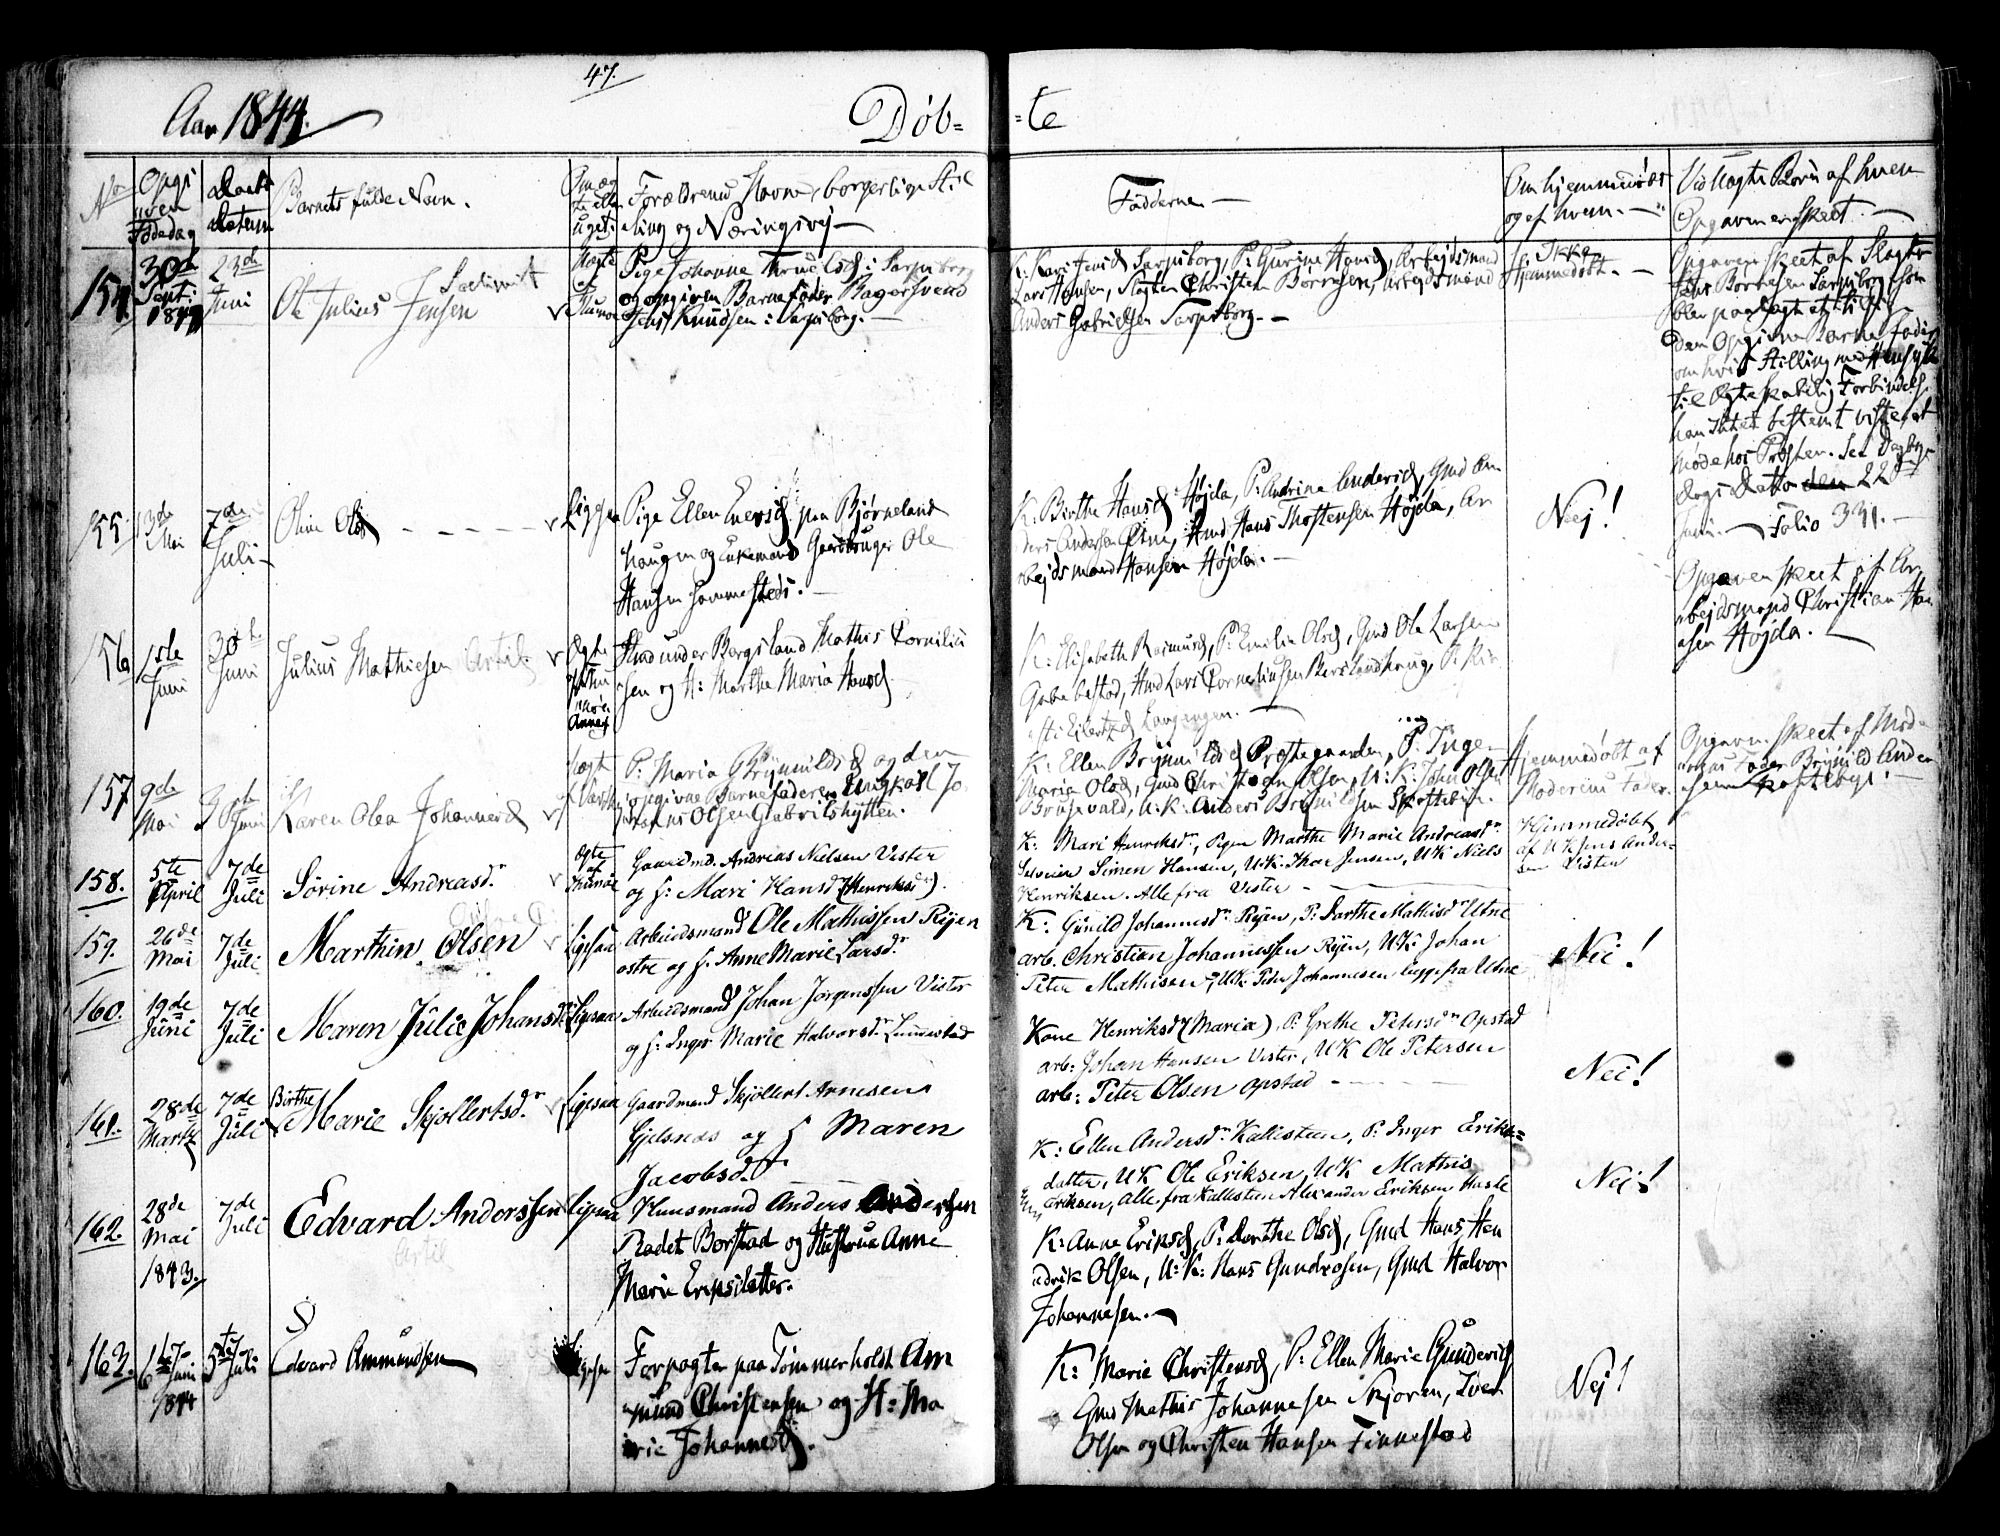 47.
Aar 1844.
Døb=
=te
No
Opgi
Fødedag
Datum
Barnets fulde Navn.
Forældrenes Navne, borgerlige Stil
ling og Næringsvej
Fadderne
Om hjemmedøbt
og af hvem.
Ved uægte Børn af hvem
Opgaven er skeet.
154
30te
Septr
23de
Juni
Ole Julius Jensen
Pige Johanne i Sarpsborg
og opgiven Barnefader
Jens Knudsen i Sarpsborg.
K: Kari Sarpsborg, P: Gurine Arbejdsmand
Lars Hansen, Christen Børresen, Arbejdsmand
Anders Gabrielsen Sarpsborg.
Ikke
Hjemmedøbt.
Opgaven skeet af
Børresen Sarpsborg, som
blev paalagt at tilsige
den Opgivne Barnefader
om hvis Stilling med Hensyn
til Ægteskabelig Forbindelse
han Intet bestemt vidste, at
møde hos Præsten. See Dagbogs
22de
Juni. Folio 331.
155
13de
Mai
7de
Juli
Oline Olsd
Pige Ellen paa Bjørneland
haugen og Enkemand Gaardbruger Ole
Hansen
K: Birthe Hansd Højda, P: Andrine Andersd, Gmd An
ders Andersen Hmd Hans Thostensen Højda, Ar
bejdsmand Hansen Højda.
Nej!
Opgaven skeet af Ar
bejdsmand Christian Han
sen Højda.
156
1ste
Juni
30te
Juni
Julius Mathiesen
Ægte
under Bergsland Mathis Corneliu
sen og H: Marthe Maria Hansd
K: Elisabeth Rasmusd, P: Emilie Olsd, Gmd Ole Larsen
Hmd Lars Corneliusen
157
9de
Mai
30te
Juni
Karen Olea Johannesd
P: Maria Brynildsd og den
opgivne Barnefader Ungkarl Jo
hannes Olsen Gabrilshytten.
K: Ellen Brynildsd Præstegaarden, P: Inge
Maria Olsd, Gmd Christian Olsen, U: K: John Olsen
U: K: Anders Brynildsen
Hjemmedøbt af
Moderens Fader.
Opgaven skeet af Mode
rens Fader Brynild Ander
sen
158.
5te
April
7de
Juli
Sørine Andreasdr
Ægte
af
Gaardmd. Andreas Nielsen Vister
og h: Mari Hansdr (Henriksdr).
K: Mari Henriksdr, Pigen Marthe Marie Andreasdr
Simen Hansen, U:K: Thor Jensen, UK Niels
Henriksen. Alle fra Vister
Hjemmedøbt
af UK Jens Ander-
sen Vister
159.
26de
Mai
7de
Juli
Marthin Olsen
Ligesaa
Arbeidsmand Ole Mathissen Ryen
østre og h: Anne Marie Larsdr
K: Gunild Johannesdr Ryen, P: Dorthe Mathisdr Utne
arb. Christian Johannessen Ryen, UK: Johan
Peter Mathisen, UK: Peder Johannesen begge fra Utne
Nei!
160.
19de
Juni
7de
Juli
Maren Julie Johansdr
Ligesaa
Arbeidsmand Johan Jørgenssen Vister
og h: Inger Marie Halvorsdr
Kone Henriksdr (Maria), P: Grethe Petersdr Opstad
arb: Johan Hansen Vister, UK Ole Petersen
arb: Peter Olsen Opstad
Nei!
161.
28de
Martz
7de
Juli
Birthe
Marie Skjøllertsdr
Ligesaa
Gaardmand Skjøllert Arnesen
og h Maren
Jacobsdr
K: Ellen Andersdr Kallesteen, P: Inger Eriks=
datter, UK Ole Eriksen, UK Mathis
Eriksen, alle fra Kallesteen Alexander Eriksen Hasle
Nei!
162.
28de
Mai
1843.
7de
Juli
Edvard Anderssen
Ligesaa
Huusmand Anders Andersen
Rødet Borstad og Hustrue Anne
Marie Eriksdatter.
K: Anne Eriksd, P: Dorthe Olsd, Gmd Hans Hen
drik Olsen, U: K: Hans Gundrosen, Gmd Halvor
Johannesen.
163.
Juni
1844
Juli
Edvard Ammundsen
Forpagter paa Tømmerholdt Am
mund Christensen og H: Ma
rie Johannesd.
K: Marie Christensd, P: Ellen Marie Gundersd
Gmd Mathis Johannesen Skjøren, Iver
Olsen og Christen Hansen Finnestad
Nej!